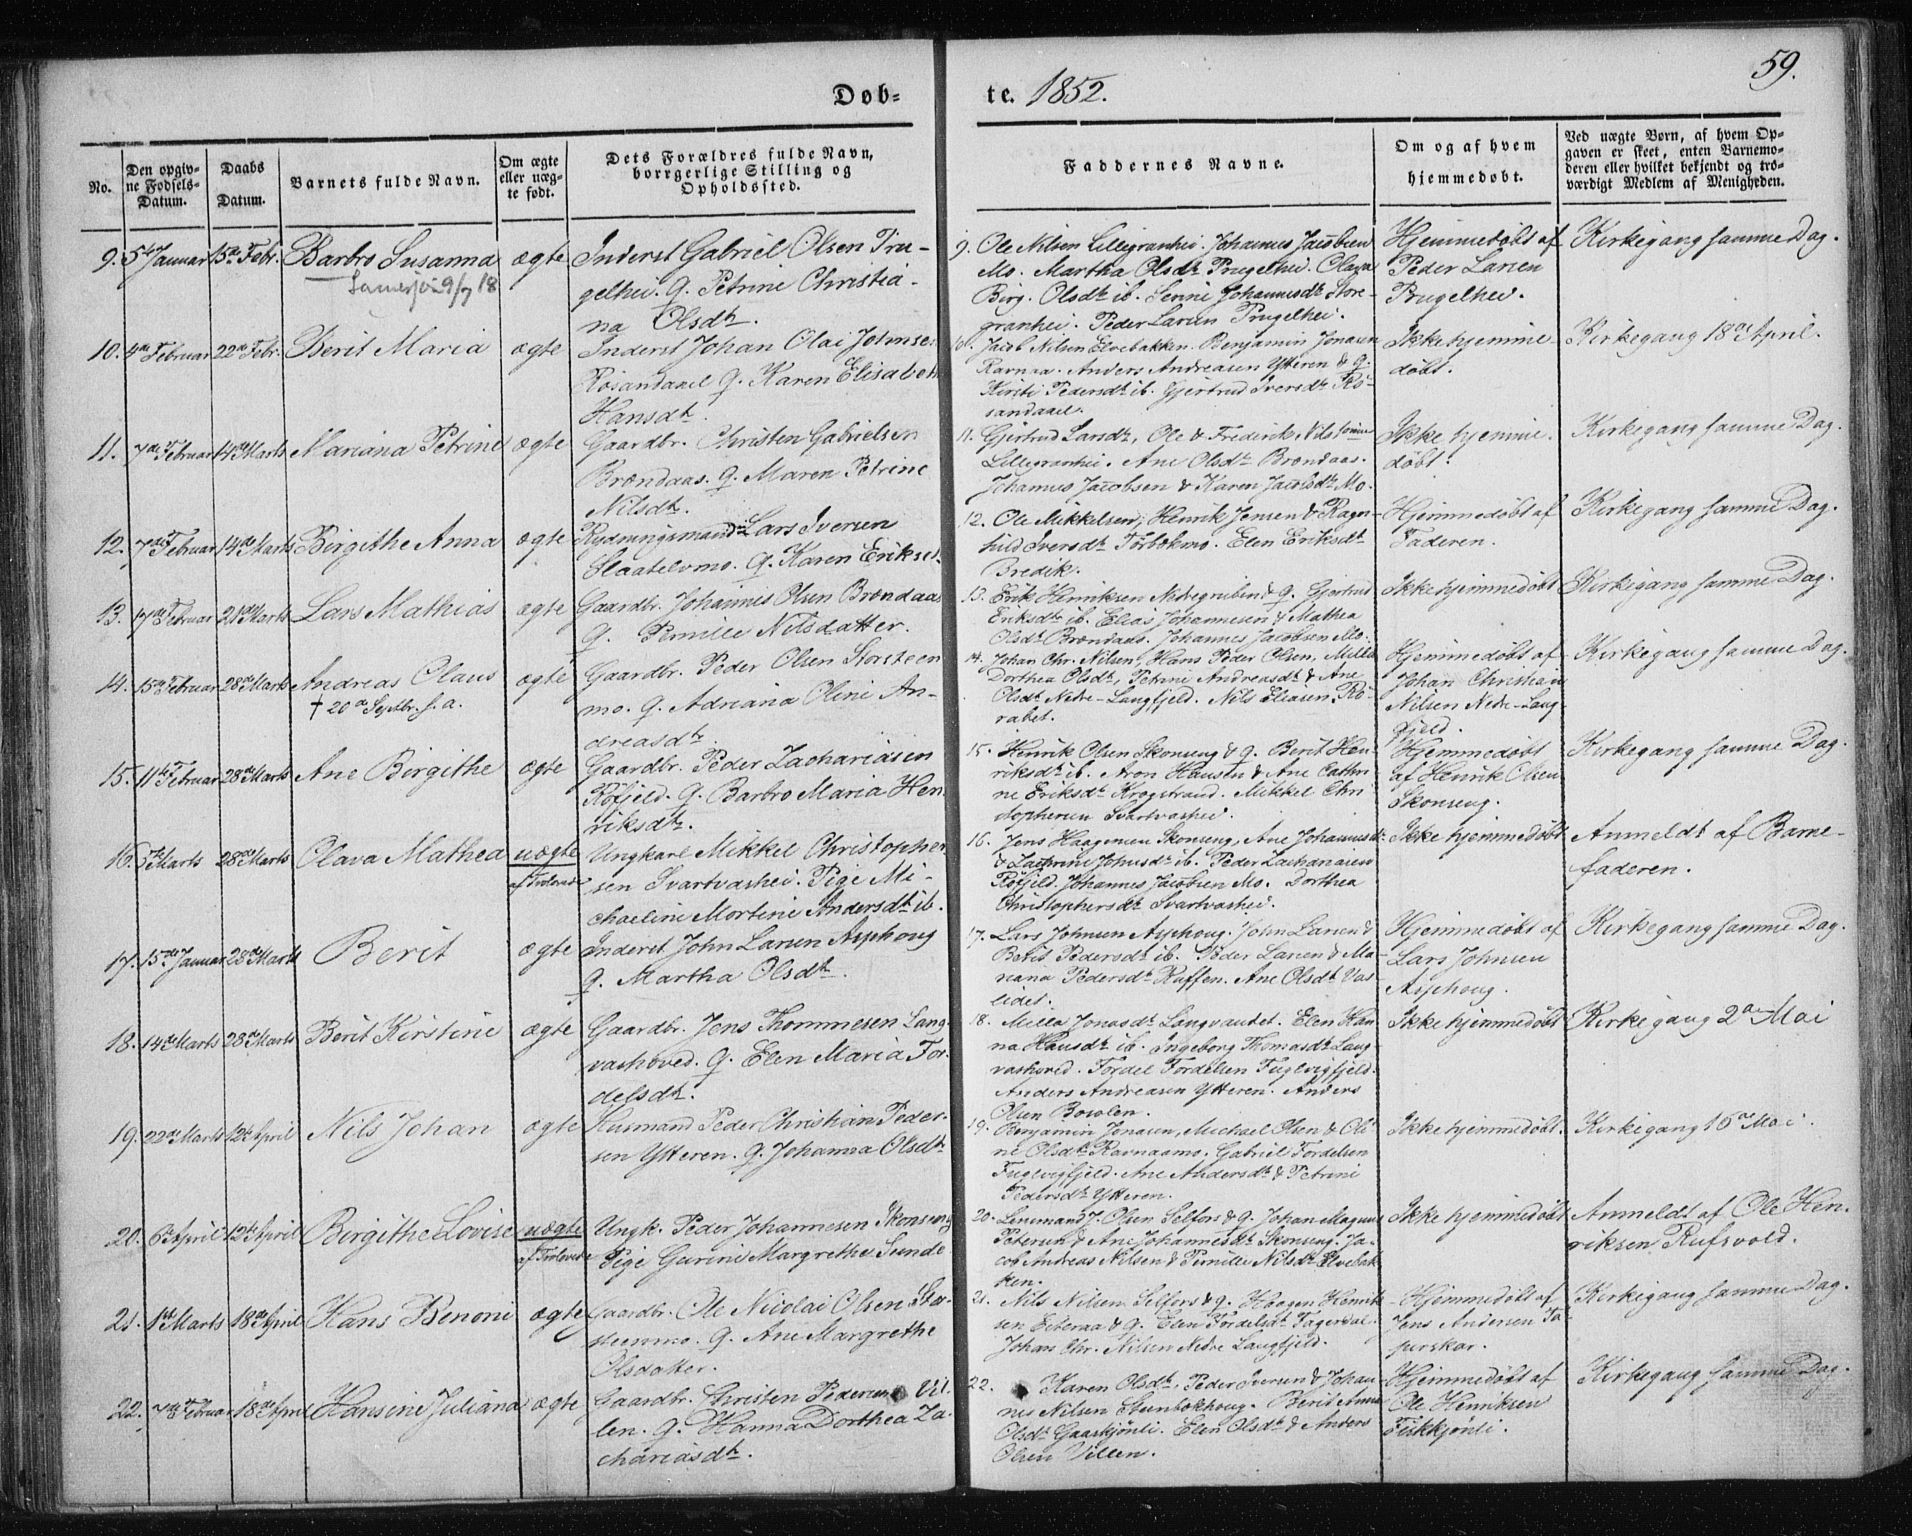 59.
Døb- te. 1852.
No.
Den opgiv-
ne Fødsels-
Datum.
Daabs
Datum.
Barnets fulde Navn.
Om ægte
eller uæg-
te født.
Dets Forældres fulde Navn,
borrgerlige Stilling og
Opholdssted.
Faddernes Navne.
Om og af hvem
hjemmedøbt.
Ved uægte Børn, af hvem Op-
gaven er skeet, enten Barnemo-
deren eller hvilket bekjendt og tro-
værdigt Medlem af Menigheden.
9. 5te Januar 15de Febr. Barbro Susanna ægte
9/7 18
Inderst Gabriel Olsen Pru-
gelhei. Q. Petrine Christia-
na Olsdtr.
9. Ole Nilsen Lillegranhei. Johannes Jacobsen
Mo. Martha Olsdtr Prugelhei. Olava
Birg. Olsdtr ib. Serine Johannesdtr Store-
granhei. Peder Larsen Prugelhei.
Hjemmedøbt af
Peder Larsen
Prugelhei.
Kirkegang samme Dag.
10. 4de Februar 22de Febr. Berit Maria ægte
Inderst Johan Olai Johnsen
Røsandaael Q. Karen Elisabeth
Hansdtr.
10. Jacob Nilsen Elvebakken. Benjamin Jonasen
Ravnaa. Anders Andreasen Ytteren & Q.
Kirsti Pedersdtr ib. Gjertrud Iversdtr Rø-
sandaael.
Ikke hjemme
døbt.
Kirkegang 18de April.
11. 7de Februar 14de Marts Mariana Petrine ægte
Gaardbr. Christen Gabrielsen
Brændaas. Q. Maren Petrine
Nilsdtr.
11. Gjertrud Larsdtr, Ole & Frederik Nils sønner
Lillegranhei. Ane Olsdtr Brændaas.
Johannes Jacobsen & Karen Jacobsdtr Mo.
Ikke hjemme.
døbt.
Kirkegang samme Dag.
12. 7de Februar 14de Marts Birgithe Anna ægte
Rydningsmand Lars Iversen
Slaatelvmo. Q. Karen Eriksdtr.
12. Ole Mikkelsen, Henrik Jensen & Ragn-
hild Iversdtr Forbekmo. Elen Eriksdtr
Bredik.
Hjemmedøbt af
Faderen.
Kirkegang samme Dag.
13. 17de Februar 21de Marts Lars Mathias ægte
Gaardbr. Johannes Olsen Brændaas
Q. Pernille Nilsdatter.
13. Erik Henriksen Nedregruben & Q. Gjertrud
Eriksdtr ib. Elias Johannesen & Mathea
Olsdtr Brændaas. Johannes Jacobsen Mo.
Ikke hjemmedøbt
Kirkegang samme Dag.
14. 15de Februar 28de Marts Andreas Claus ægte
† 20de Septbr. s. a.
Gaardbr. Peder Olsen Storsteen
mo. Q. Adriana Oline An-
dreasdtr.
14. Johan Chr. Nilsen, Hans Peder Olsen, Milla
Dorthea Olsdtr, Petrine Andreasdtr & Ane
Olsdtr Nedre-Langfjeld. Nils Eliasen Rø-
rabet.
Hjemmedøbt af
Johan Christian
Nilsen Nedre-Lang
fjeld.
Kirkegang samme Dag.
15. 11te Februar 28de Marts Ane Birgithe ægte
Gaardbr. Peder Zachariasen
Røfjeld. Q. Barbro Maria Hen
riksdtr.
15. Henrik Olsen Skonseng & Q. Berit Hen-
riksdtr ib. Aron Hansen & Ane Cathri-
ne Eriksdtr Krogstrand. Mikkel Chri
stophersen Svartvashei.
Hjemmedøbt
af Henrik Olsen
Skonseng.
Kirkegang samme Dag.
16. 5te Marts 28de Marts Olava Mathea uægte
af Trolovede
Ungkarl Mikkel Christopher
sen Svartvashei. Pige Mi-
chaeline Mortine Andersdtr ib.
16. Jens Haagensen Skonseng, Ane Johannesdtr
& Johnsdtr ib. Peder Zachariasen
Røfjeld. Johannes Jacobsen Mo. Dorthea
Christophersdtr Svartvashei.
Ikke hjemmedøbt
Anmeldt af Barne-
faderen.
17. 15de Januar 28de Marts Berit ægte
Inderst John Larsen Asphoug
Q. Martha Olsdtr.
17. Lars Johnsen Asphoug. John Larsen &
Berit Pedersdtr ib. Peder Larsen & Ma-
riana Pedersdtr Raffen. Ane Olsdtr Vas-
lidet.
Hjemmedøbt af
Lars Johnsen
Asphoug.
Kirkegang samme Dag.
18. 14de Marts 28de Marts Berit Kirstine ægte
Gaardbr. Jens Thommesen Lang-
vashoved. Q. Elen Maria For-
delsdtr.
18. Milla Jonasdtr Langvandet. Elen Han-
na Hansdtr ib. Ingeborg Thomasdtr Lang-
vashoved. Fordel Fordelsen Fuglevigfjeld.
Anders Andreasen Ytteren. Anders
Olsen Bosolen.
Ikke hjemmedøbt
Kirkegang 2den Mai
19. 22de Marts 12te April Nils Johan ægte
Husmand Peder Christian Peder-
sen Ytteren. Q. Johanna Olsdtr
19. Benjamin Jonasen, Michael Olsen & Oli-
ne Olsdtr Ravnaamo. Gabriel Fordelsen
Fuglevigfjeld. Ane Andersdtr & Petrine
Pedersdtr Ytteren.
Ikke hjemmedøbt.
Kirkegang 16de Mai.
20. 6te April 12te April Birgithe Lovise uægte
af Trolovede
Ungk. Peder Johannesen Skonseng
Pige Gurine Margrethe Sunde
20. Lensmand J. Olsen Selfors & Q. Johan Magnus
Petersen & Ane Johannesdtr Skonseng. Ja-
cob Andreas Nilsen & Pernille Nilsdtr Elvebak-
ken.
Ikke hjemmedøbt
Anmeldt af Ole Hen-
riksen Rufsvold.
21. 1ste Marts 18de April Hans Benoni ægte
Gaardbr. Ole Nicolai Olsen Stor-
steenmo. Q. Ane Margrethe
Olsdatter.
21. Nils Nilsen Selfors & Q. Haagen Henrik-
sen & Q. Elen Fordelsdtr Fagerdal.
Johan Chr. Nilsen Nedre Langfjeld.
Hjemmedøbt af
Jens Andersen Ta-
perskar.
Kirkegang samme Dag.
22. 7de Februar 18de April Hansine Juliana ægte
Gaardbr. Christen Pedersen Vil-
len. Q. Hanna Dorthea Za-
chariasdtr.
22. Karen Olsdtr, Peder Iversen & Johan-
nes Nilsen Steenbekhoug. Berit Anne
Olsdtr Gaaskjønli. Elen Olsdtr & Anders
Olsen Villen.
Hjemmedøbt af
Ole Henriksen
Fiskkjønli.
Kirkegang samme Dag.